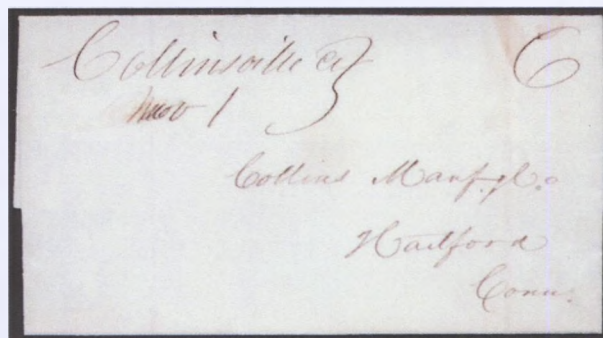 Collinsville Ct 6
Nov 1
Collins Manfg Co.
Hartford
Conn.